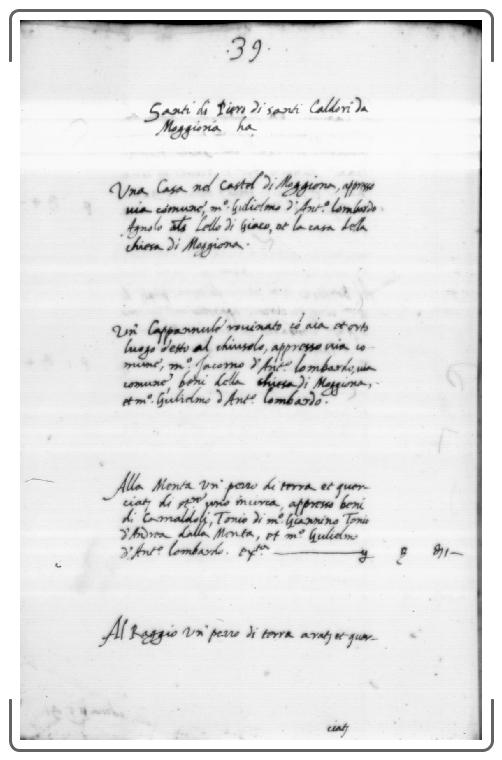 .39.
Santi di Piero di santi Caldori da
Moggiona ha
Una Casa nel Castel di Moggiona, appresso
via comune, m.º Gulielmo d'Ant.º lombardo
Agnolo als Lello di Giaco, et la casa della
chiesa di Moggiona.
Un' Cappannulo rovinato cõ aia et orto
luogo detto al chiusolo, appresso via co-
mune, m.º Jacomo d'Ant.º lombardo, via
comune, beni della chiesa di Moggiona,
et m.º Gulielmo d'Ant.º lombardo.
Alla Monta un' pezzo di terra et quer-
ciatj di uno incirca, appresso beni
di Camaldoli, Tonio di m.º Giannino Tonio
d'Andrea dalla Monta, et m.º Gulielmo
d'Ant.º lombardo.
Al Raggio un' pezzo di terra aratj et quer-
ciatj